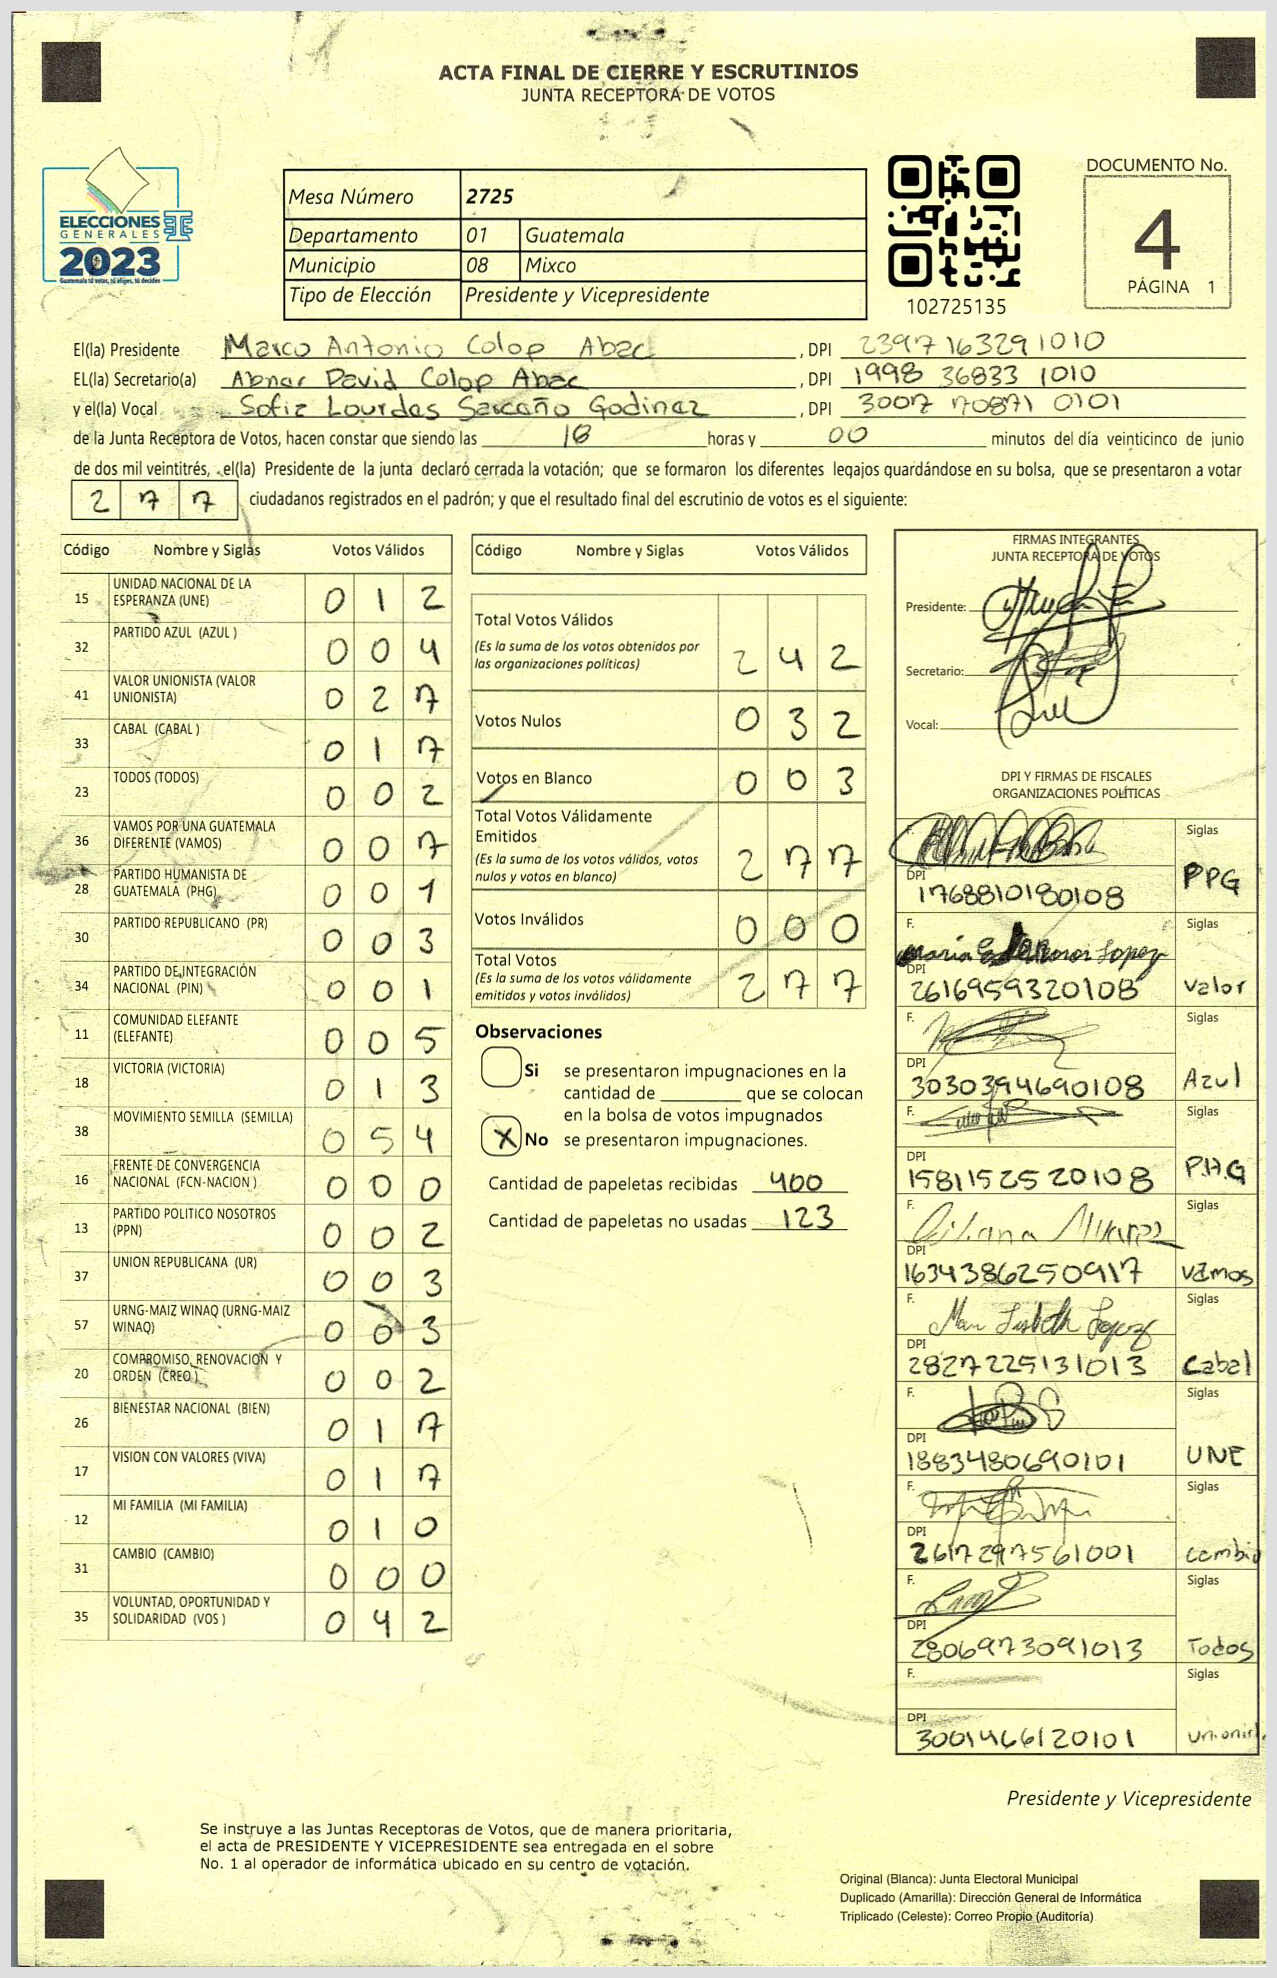 ACTA FINAL DE CIERRE Y ESCRUTINIOS
JUNTA RECEPTORA DE VOTOS
ELECCIONES
GENERALES
2023
Guatemala tú votas, tú eliges, tú decides
Mesa Número 2725
Departamento 01 Guatemala
Municipio 08 Mixco
Tipo de Elección Presidente y Vicepresidente
102725135
DOCUMENTO No.
4
PÁGINA 1
El(la) Presidente Marco Antonio Colop Abac, DPI 2397163291010
EL(la) Secretario(a) Abner David Colop Abac, DPI 1998 36833 1010
y el(la) Vocal Sofia Lourdes Sarceño Godinez, DPI 3007 70871 0101
de la Junta Receptora de Votos, hacen constar que siendo las 18 horas y 00 minutos del día veinticinco de junio
de dos mil veintitrés, el(la) Presidente de la junta declaró cerrada la votación; que se formaron los diferentes legajos guardándose en su bolsa, que se presentaron a votar
2 7 7 ciudadanos registrados en el padrón; y que el resultado final del escrutinio de votos es el siguiente:
Código Nombre y Siglas Votos Válidos
15 UNIDAD NACIONAL DE LA ESPERANZA (UNE) 0 1 2
32 PARTIDO AZUL (AZUL ) 0 0 4
41 VALOR UNIONISTA (VALOR UNIONISTA) 0 2 7
33 CABAL (CABAL ) 0 1 7
23 TODOS (TODOS) 0 0 2
36 VAMOS POR UNA GUATEMALA DIFERENTE (VAMOS) 0 0 7
28 PARTIDO HUMANISTA DE GUATEMALA (PHG) 0 0 1
30 PARTIDO REPUBLICANO (PR) 0 0 3
34 PARTIDO DE INTEGRACIÓN NACIONAL (PIN) 0 0 1
11 COMUNIDAD ELEFANTE (ELEFANTE) 0 0 5
18 VICTORIA (VICTORIA) 0 1 3
38 MOVIMIENTO SEMILLA (SEMILLA) 0 5 4
16 FRENTE DE CONVERGENCIA NACIONAL (FCN-NACION ) 0 0 0
13 PARTIDO POLITICO NOSOTROS (PPN) 0 0 2
37 UNION REPUBLICANA (UR) 0 0 3
57 URNG-MAIZ WINAQ (URNG-MAIZ WINAQ) 0 0 3
20 COMPROMISO, RENOVACION Y ORDEN (CREO ) 0 0 2
26 BIENESTAR NACIONAL (BIEN) 0 1 7
17 VISION CON VALORES (VIVA) 0 1 7
12 MI FAMILIA (MI FAMILIA) 0 1 0
31 CAMBIO (CAMBIO) 0 0 0
35 VOLUNTAD, OPORTUNIDAD Y SOLIDARIDAD (VOS ) 0 4 2
Código Nombre y Siglas Votos Válidos
Total Votos Válidos
(Es la suma de los votos obtenidos por
las organizaciones políticas) 2 4 2
Votos Nulos 0 3 2
Votos en Blanco 0 0 3
Total Votos Válidamente
Emitidos
(Es la suma de los votos válidos, votos
nulos y votos en blanco) 2 7 7
Votos Inválidos 0 0 0
Total Votos
(Es la suma de los votos válidamente
emitidos y votos inválidos) 2 7 7
Observaciones
Si se presentaron impugnaciones en la
cantidad de ________ que se colocan
en la bolsa de votos impugnados
X No se presentaron impugnaciones.
Cantidad de papeletas recibidas 400
Cantidad de papeletas no usadas 123
FIRMAS INTEGRANTES
JUNTA RECEPTORA DE VOTOS
Presidente:
Secretario:
Vocal:
DPI Y FIRMAS DE FISCALES
ORGANIZACIONES POLÍTICAS
F. Siglas
DPI PPG
1768810180108
F. María Lopez Siglas
DPI Valor
2616959320108
F. Siglas
DPI Azul
3030394690108
F. Siglas
DPI P.H.G
1581152520108
F. Liliana Alvarez Siglas
DPI Vamos
1634386250917
F. Mari Lisbeth Lopez Siglas
DPI Cabal
2827225131013
F. Siglas
DPI UNE
1883480690101
F. Siglas
DPI Cambio
2617297561001
F. Siglas
DPI Todos
2806973091013
F. Siglas
DPI
3001466120101
Presidente y Vicepresidente
Se instruye a las Juntas Receptoras de Votos, que de manera prioritaria,
el acta de PRESIDENTE Y VICEPRESIDENTE sea entregada en el sobre
No. 1 al operador de informática ubicado en su centro de votación.
Original (Blanca): Junta Electoral Municipal
Duplicado (Amarilla): Dirección General de Informática
Triplicado (Celeste): Correo Propio (Auditoría)